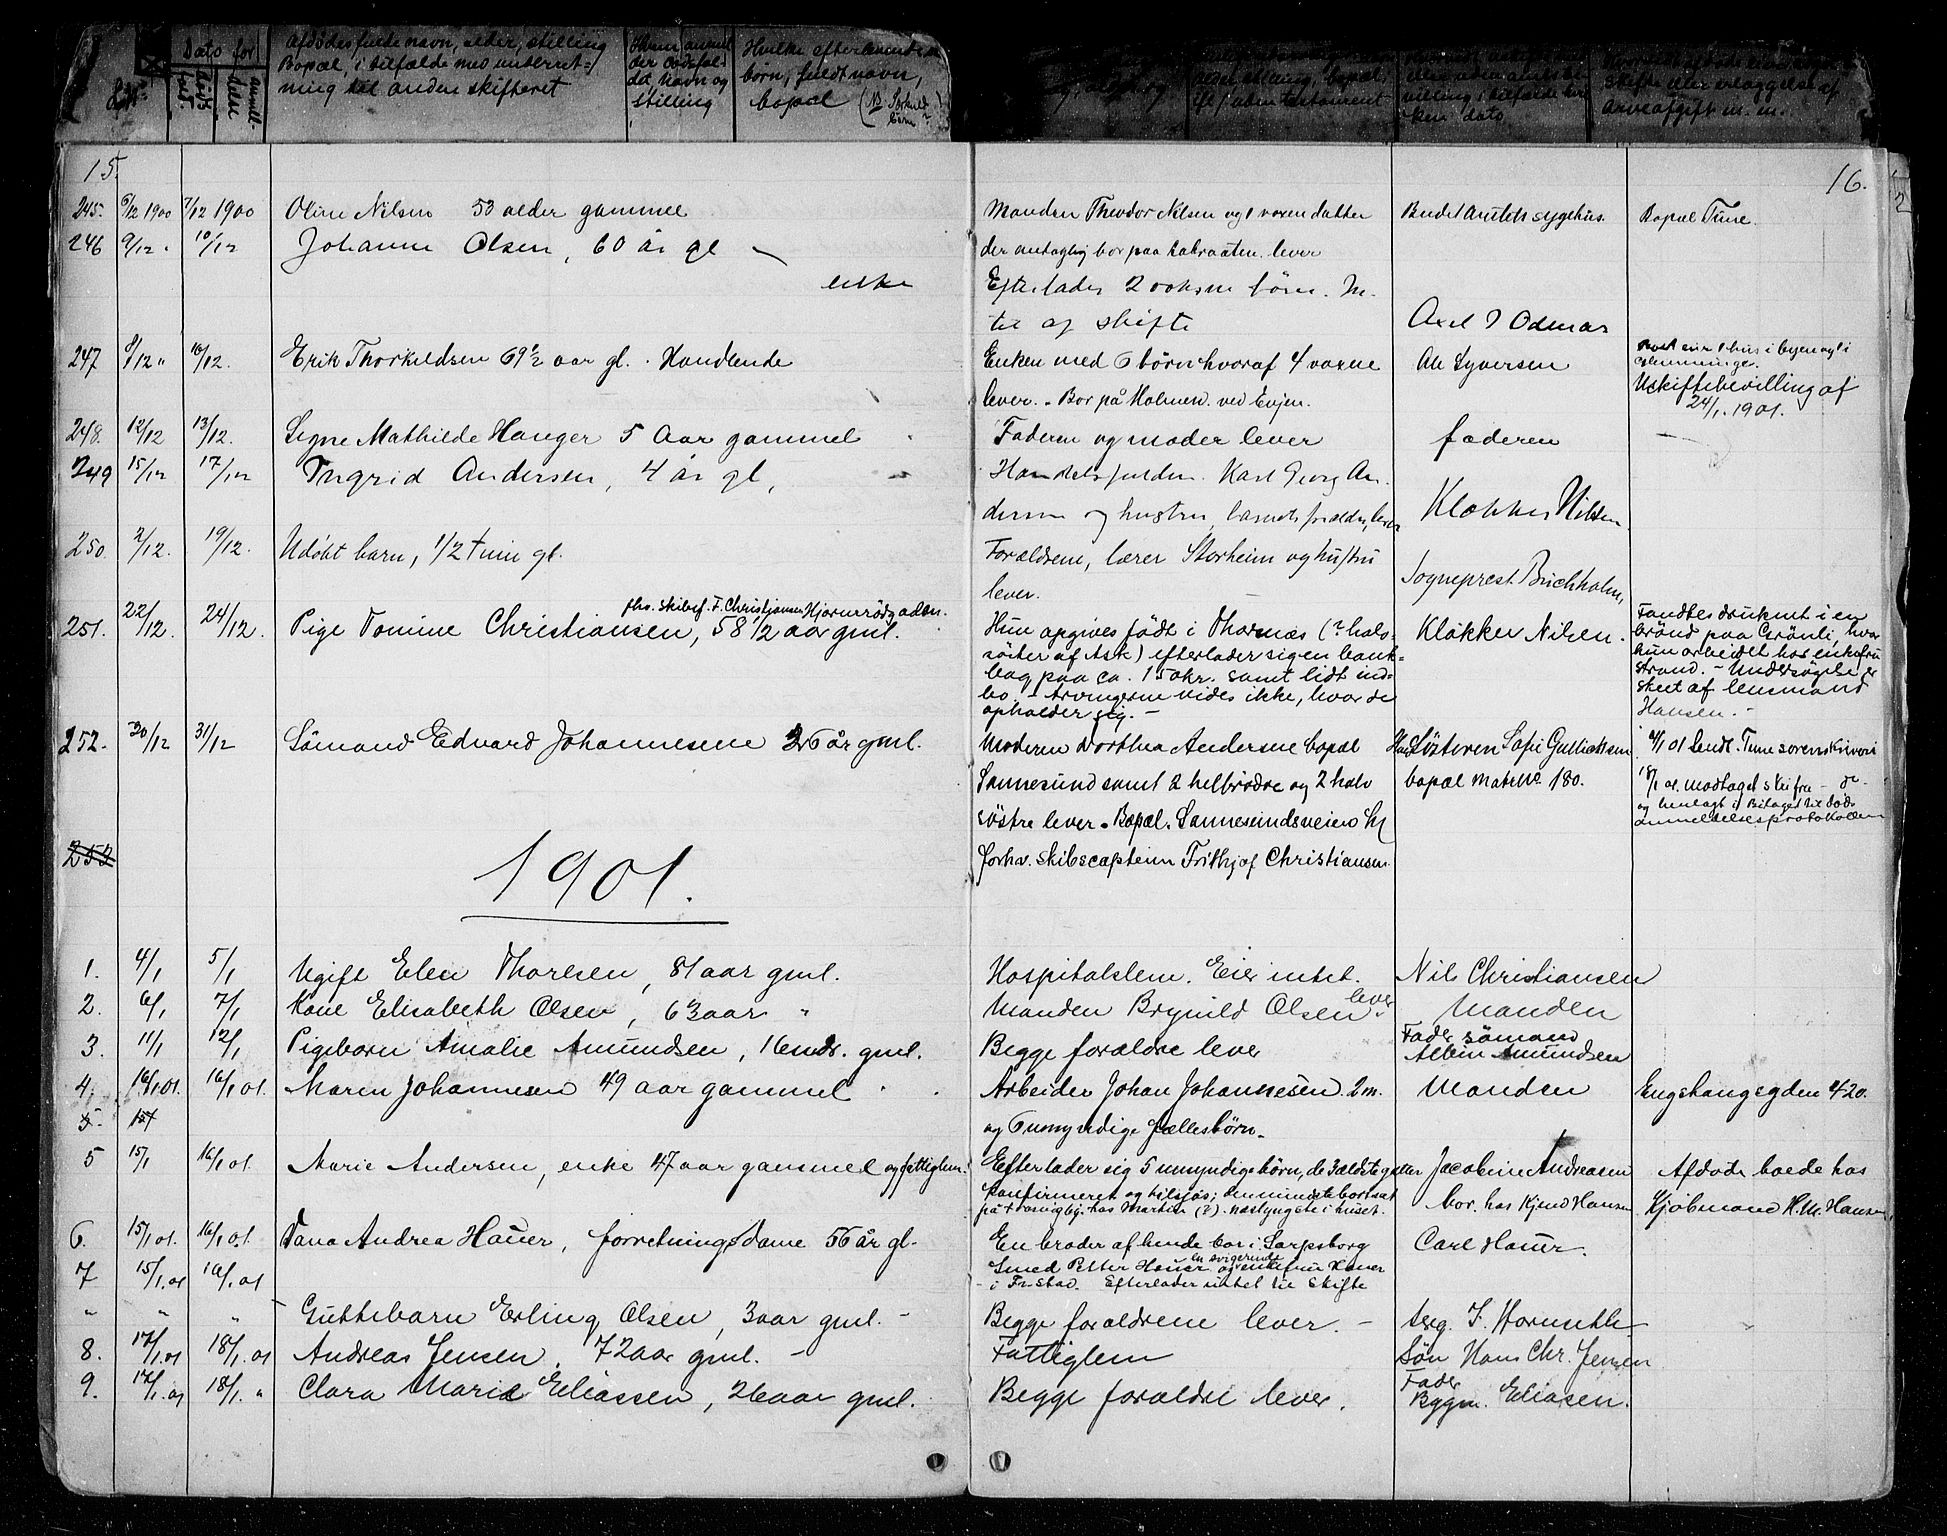 Dato for
Afdødes fulde navn, alder, stilling
Bopæl, i tilfælde med underret-
ning til anden skifteret
Hvem anmel
der dødsfal-
det, navn og
stilling
Hvilke efterlevende
børn, fuldt navn,
bopæl
15.
16.
245. 6/12 1900 7/12 1900 Oline Nilsen 53 alder gammel Manden Theodor Nilsen og 1 voxen datter Budet Amtets sygehus. Bopæl Tune.
246 9/12 " 10/12 Johanne Olsen, 60 år gl der antaglig bor paa lever
enke Efterlader 2 voksne børn. In-
tet af skifte Axel Odmar
247 8/12 " 10/12. Erik Thorkildsen 69 1/2 aar gl. Handlende Enken med 6 børn hvoraf 4 voxne Ole Syversen
lever. Bor på Holmen. ved Evjen. Uskiftebevilling af
24/1. 1901.
248. 12/12 13/12. Signe Mathilde Hauger 5 Aar gammel Faderen og moder lever faderen
249 15/12 17/12 Ingrid Andersen, 4 år gl, Karl Georg An-
dersen og hustru, barnets forældre, lever Klokker Nilsen
250. 2/12. 19/12. Udøbt barn, 1/2 time gl. Forældrene, lærer Storheim og hustru
lever. Sogneprest Buchholm,
251. 22/12. 24/12. Pige Tomine Christiansen, 58 1/2 aar gml. Hun opgives født i Tharnæs Klokker Nilsen. Fandtes druknet i en
hos. skibsf. F. Christiansen
søster af Ask) efterlader sig en bank- brønd paa Grönli, hvor
bog paa ca. 150 kr. samt lidt ind- hun arbeidet hos enkefru
bo. - Arvingerne vides ikke, hvor de Strand. - Undersøgelse er
opholder sig. - skeet af lensmand
Hansen. -
252. 30/12 31/12 Sömand Edvard Johannesene 26 år gml. Moderen Dorthea Andersene bopæl Søsteren Sofie Gullichsen 4/1 01 Sendt. Tune sorenskriveri
Sannesund samt 2 helbrødre og 2 halv bopæl Matr No 180. 18/1 01. modtaget skifra - do -
søstre lever. Bopæl. Sannesundsveien og henlagt i Bilaget til døds
anmeldelsesprotokollen
253 forhv. skibscaptein Frithjof Christiansen.
1901.
1. 4/1 5/1 Ugift Elen Thoresen, 81 aar gml. Hospitalslem. Eier intet. Nils Christiansen
2. 6/1 7/1 Kone Elisabeth Olsen, 63 aar " Manden Brynild Olsen lever Manden
3. 11/1 12/1 Pigebarn Amalie Amundsen, 16 mdr. gml. Begge forældre lever Fader sömand
Albin Amundsen
4. 16/1 01. 16/1 01. Maren Johannesen 49 aar gammel Arbeider Johan Johannesen. 2 m. Manden Engehaugsgden 420.
5. 15/1 og 6 umyndige fællesbørn.
5 15/1 16/1 01. Marie Andersen, enke 47 aar gammel og fattiglem. Efterlader sig 5 umyndige børn, de 3 ældste gaar Jacobine Andreasen Afdøde boede hos
konfirmeret og tilsjøs; den mindste bortsat bor. hos Kjmd Hansen Kjøbmand H. M. Hansen,
hos Martin (?). næstyngste i huset.
6. 15/1 01. 16/1 01. Dana Andrea Hauer, forretningsdame 56 år gl. En broder af hende bor i Sarpsborg Carl Hauer.
7 15/1. 01 16/1. 01 Smed Petter Hauer og enkefru Hauer
en svigerinde
i Fr.stad. Efterlader intet til Skifte
" " " Guttebarn Erling Olsen, 3 aar gml. - Begge forældrene lever. -
8. 17/1. 01 18/1. 01 Andreas Jensen. 72 aar gml. - Fattiglem Søn Hans Chr. Jensen
9. 17/1. 01 18/1. " Clara Marie Eliassen, 26 aar gml. Begge forældre lever. Fader
Bygm. Eliasen.